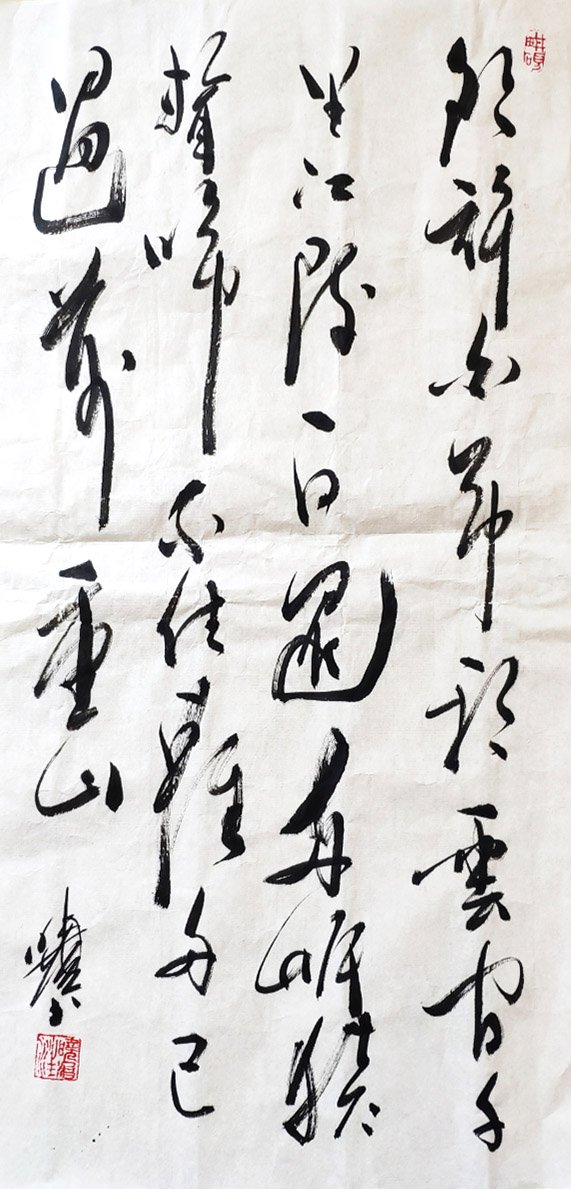 朝辭白帝彩雲間千
里江陵一日還兩岸猿
聲啼不住輕舟已
過萬重山